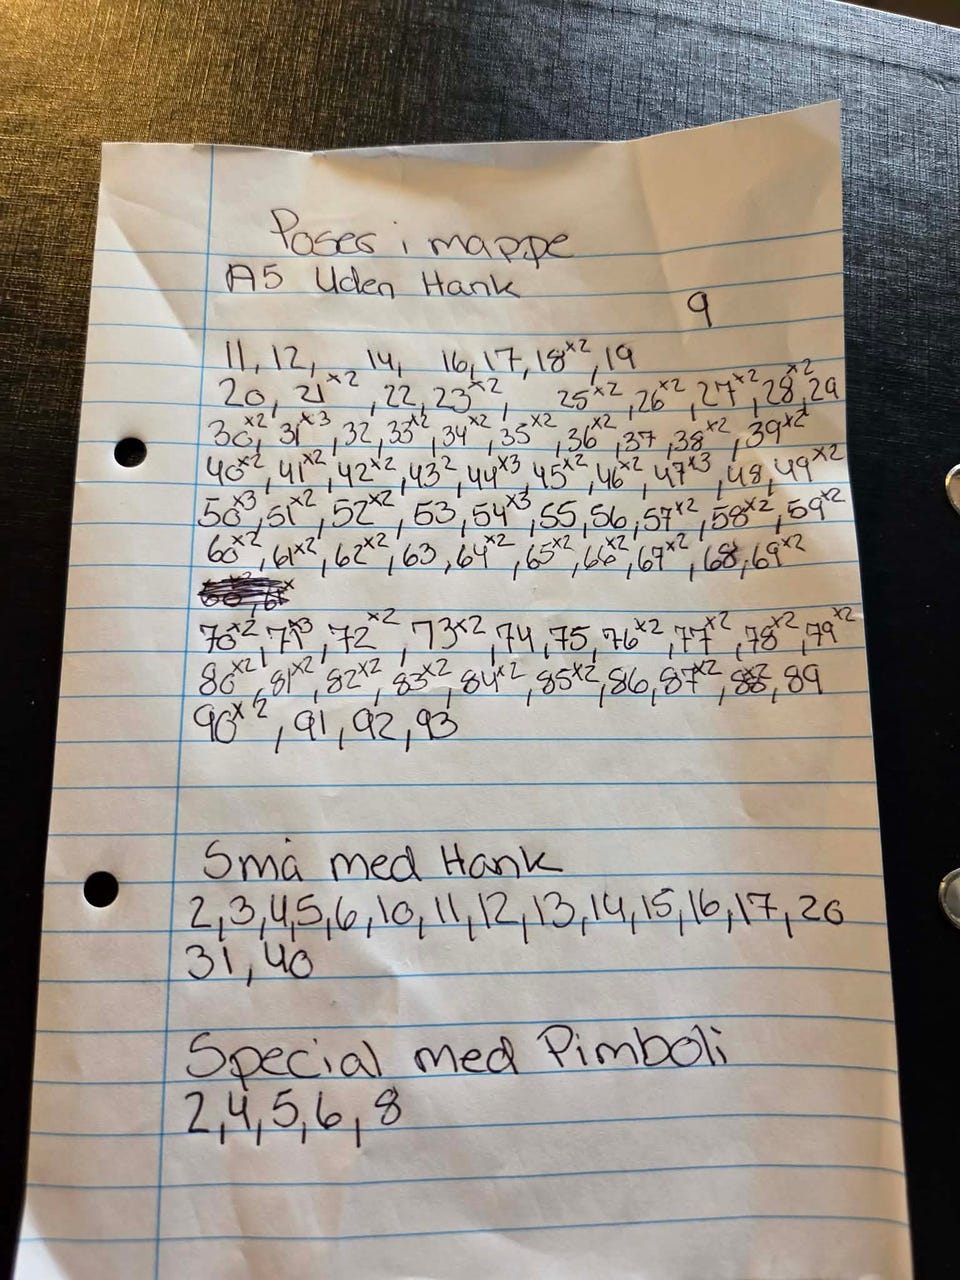 Poses i mappe
A5 Uden Hank
9
11, 12, 14, 16, 17, 18x2, 19
20, 21x2, 22, 23x2, 25x2, 26x2, 27x2, 28x2, 29
30x2, 31x3, 32, 33x2, 34x2, 35x2, 36x2, 37, 38x2, 39x2
40x2, 41x2, 42x2, 432, 44x3, 45x2, 46x2, 47x3, 48, 49x2
50x3, 51x2, 52x2, 53, 54x3, 55, 56, 57x2, 58x2, 59x2
60x2, 61x2, 62x2, 63, 64x2, 65x2, 66x2, 67x2, 68, 69x2
70x2, 71x3, 72x2, 73x2, 74, 75, 76x2, 77x2, 78x2, 79x2
80x2, 81x2, 82x2, 83x2, 84x2, 85x2, 86, 87x2, 88, 89
90x2, 91, 92, 93
Små med Hank
2, 3, 4, 5, 6, 10, 11, 12, 13, 14, 15, 16, 17, 20
31, 40
Special med Pimboli
2, 4, 5, 6, 8